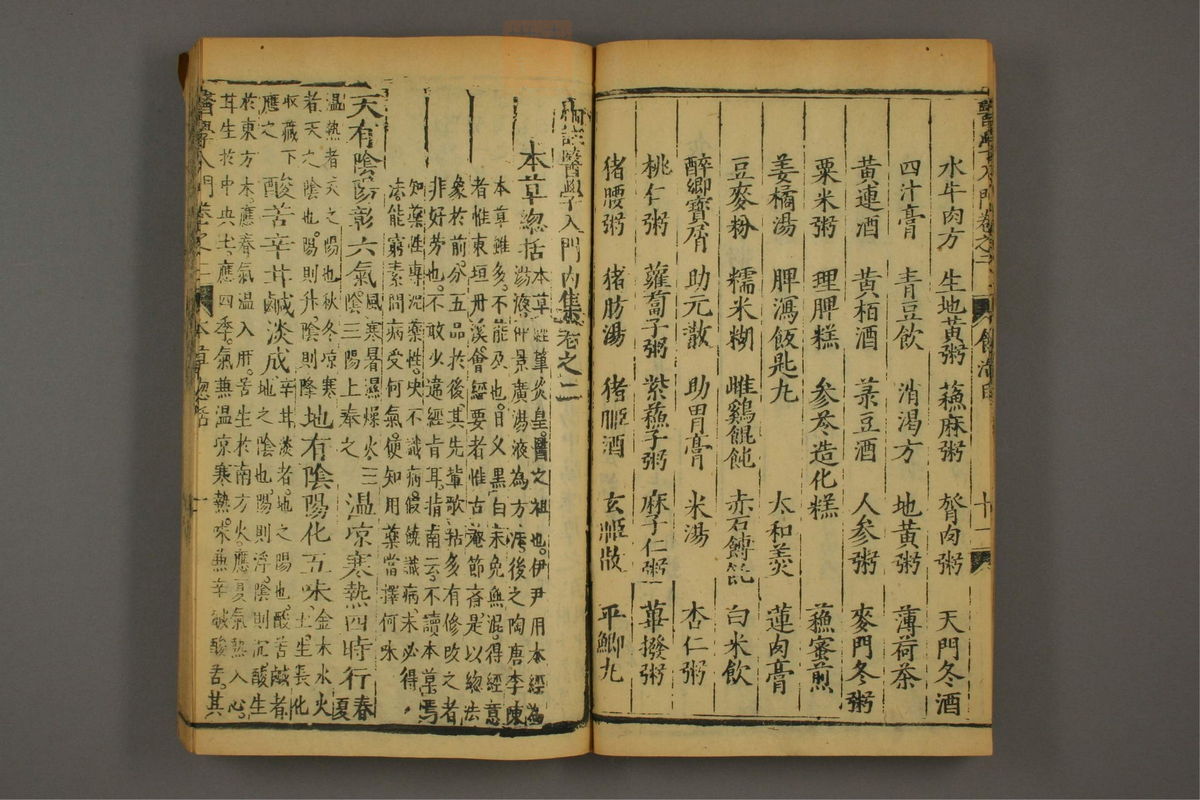 水牛肉方 生地黃粥 蘓麻粥 腎肉粥 天門冬酒
四汁膏 青豆飲 消渴方 地黃粥 薄荷茶
黃連酒 黃栢酒 菉豆酒 人參粥 麥門冬粥
粟米粥 理脾糕 參苓造化糕 蘓蜜煎
姜橘湯 脾瀉飯匙丸 太和羹 蓮肉膏
豆麥粉 糯米糊 雌鷄餛飩 赤石餺飥 白米飲
醉鄉寶屑 助元散 助胃膏 米湯 杏仁粥
桃仁粥 蘿蔔子粥 紫蘓子粥 麻子仁粥 蓽撥粥
猪腰粥 猪肪湯 猪胆酒 平鯽丸
醫學入門內集卷之二
本草總括
本草經肇炎皇醫之祖也伊尹用本經為
湯液仲景廣湯液為方後之陶唐李陳
本草雖多不能及也曰義黑白未免無混得經意
者惟東垣丹溪會經要者惟古庵節齋是以總法
象於前分五品於後其先輩歌括多有修改之者
非好勞也不敢少違經旨耳指南云不讀本草焉
知藥性專泥藥性決不識病假饒識病未必得
法能窮素問病受何氣便知用藥當擇何味
天有陰陽彰六氣風寒暑濕燥火三陰三陽上奉之溫涼寒熱四時行春夏
溫熱者天之陽也秋冬涼寒者天之陰也陽則升陰則降地有陰陽化五味金木水火土生長化
收藏下應之酸苦辛甘鹹淡成辛甘淡者地之陽也酸苦鹹者地之陰也陽則浮陰則沉酸生
於東方木應春氣溫入肝苦生於南方火應夏氣熱入心
甘生於中央土應四季氣無溫涼寒熱味無辛鹹酸苦其
醫學入門卷之二 本草總括